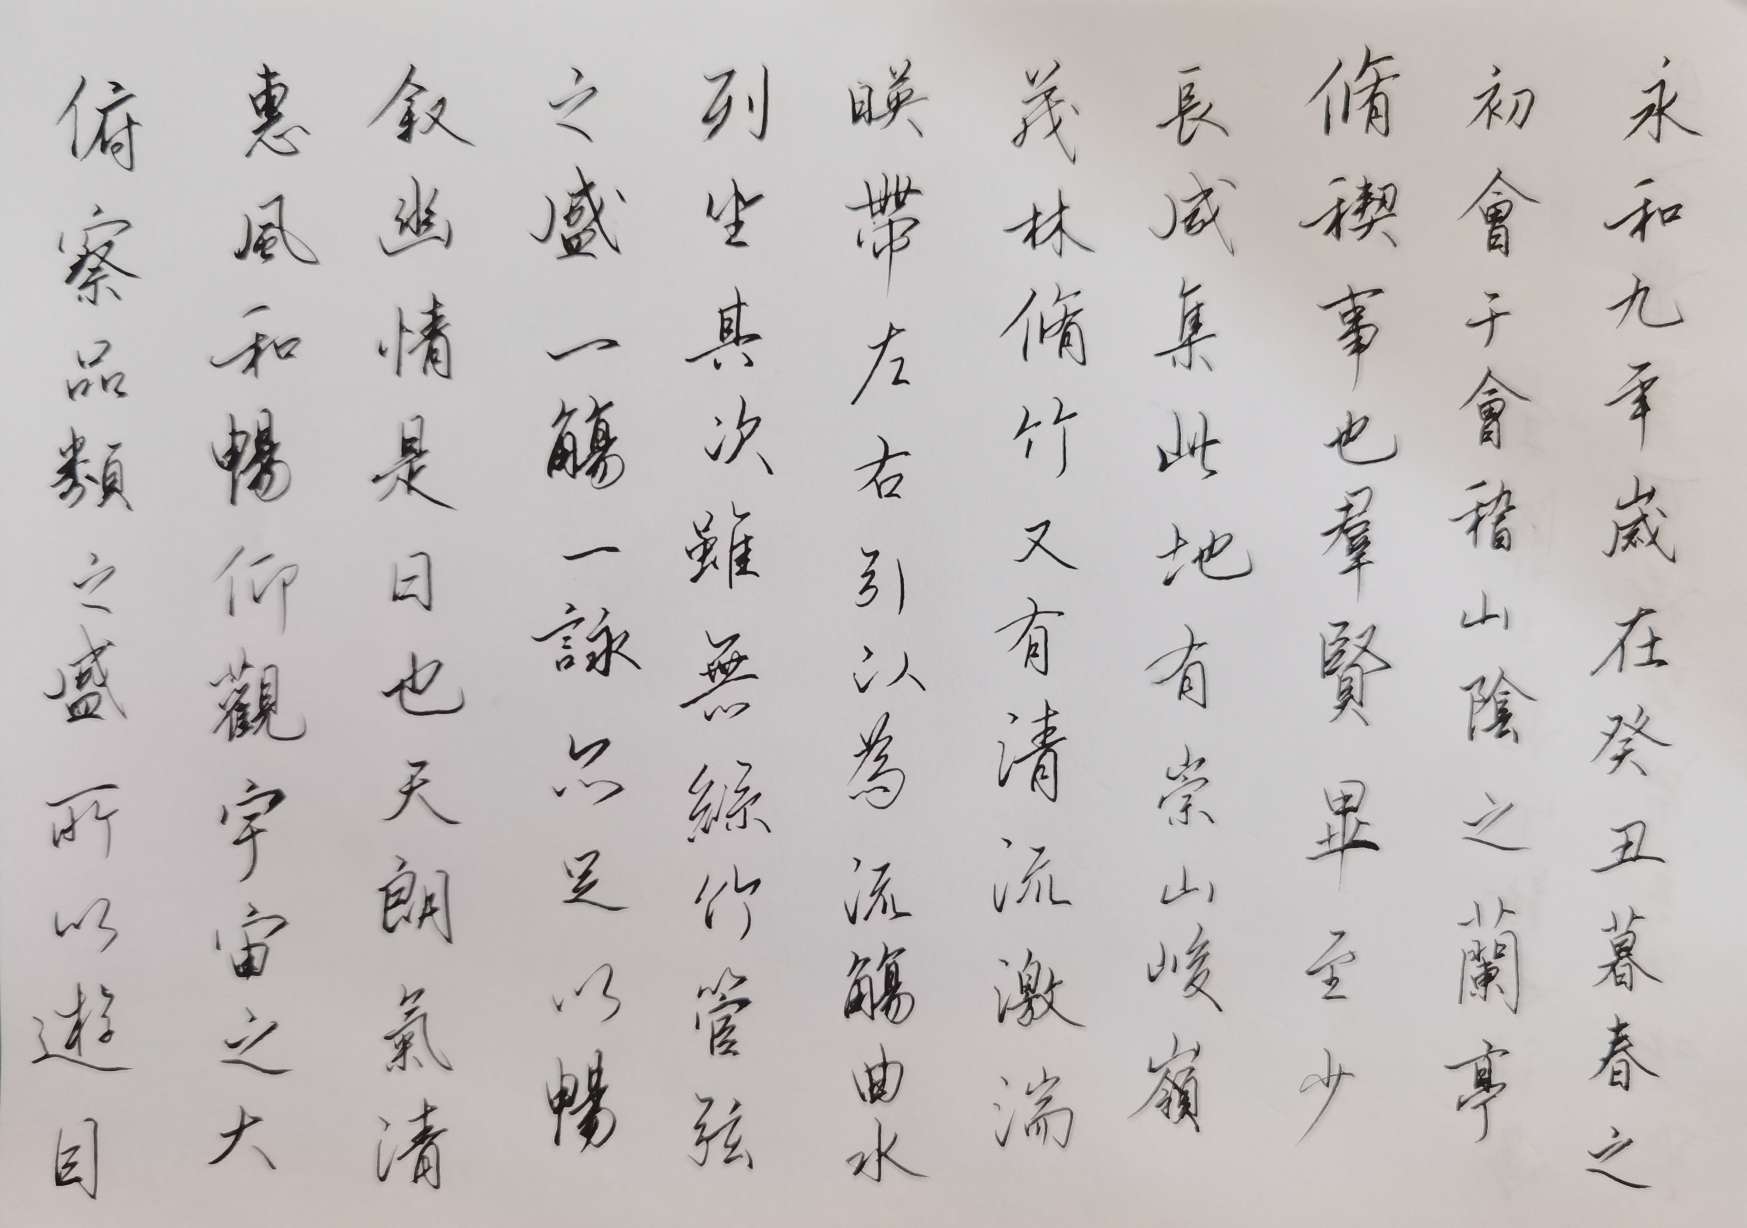 永和九年歲在癸丑暮春之
初會于會稽山陰之蘭亭
脩稧事也羣賢畢至少
長咸集此地有崇山峻嶺
茂林脩竹又有清流激湍
暎帶左右引以為流觴曲水
列坐其次雖無絲竹管弦
之盛一觴一詠亦足以暢
敘幽情是日也天朗氣清
惠風和暢仰觀宇宙之大
俯察品類之盛所以遊目